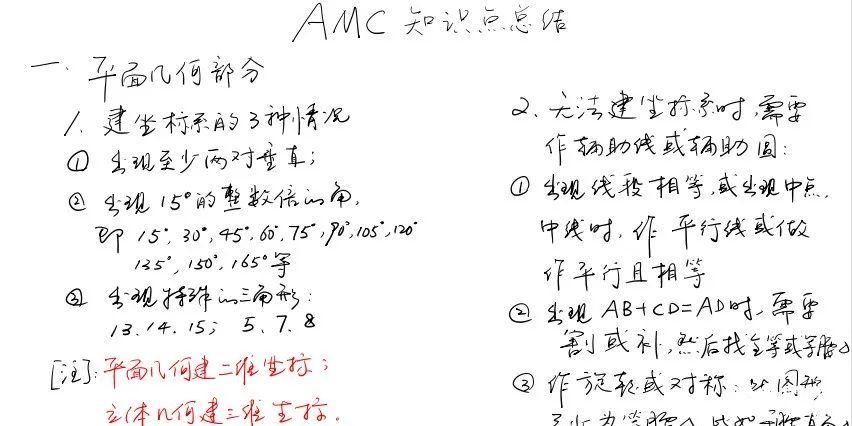 AMC 知识点总结
一. 平面几何部分
1. 建坐标系的3种情况
① 出现至少两对垂直;
② 出现15°的整数倍的角,
即 15°, 30°, 45°, 60°, 75°, 90°, 105°, 120°
135°, 150°, 165°等
③ 出现特殊的三角形:
13. 14. 15; 5. 7. 8
[注]: 平面几何建二维坐标;
立体几何建三维坐标.
2. 无法建坐标系时, 需要
作辅助线或辅助圆:
① 出现线段相等, 或出现中点,
中线时, 作平行线或做
作平行且相等
② 出现 AB+CD=AD时, 需要
割或补, 然后找全等或等腰△
③ 作旋转或对称: 图形
为等腰△, 比如